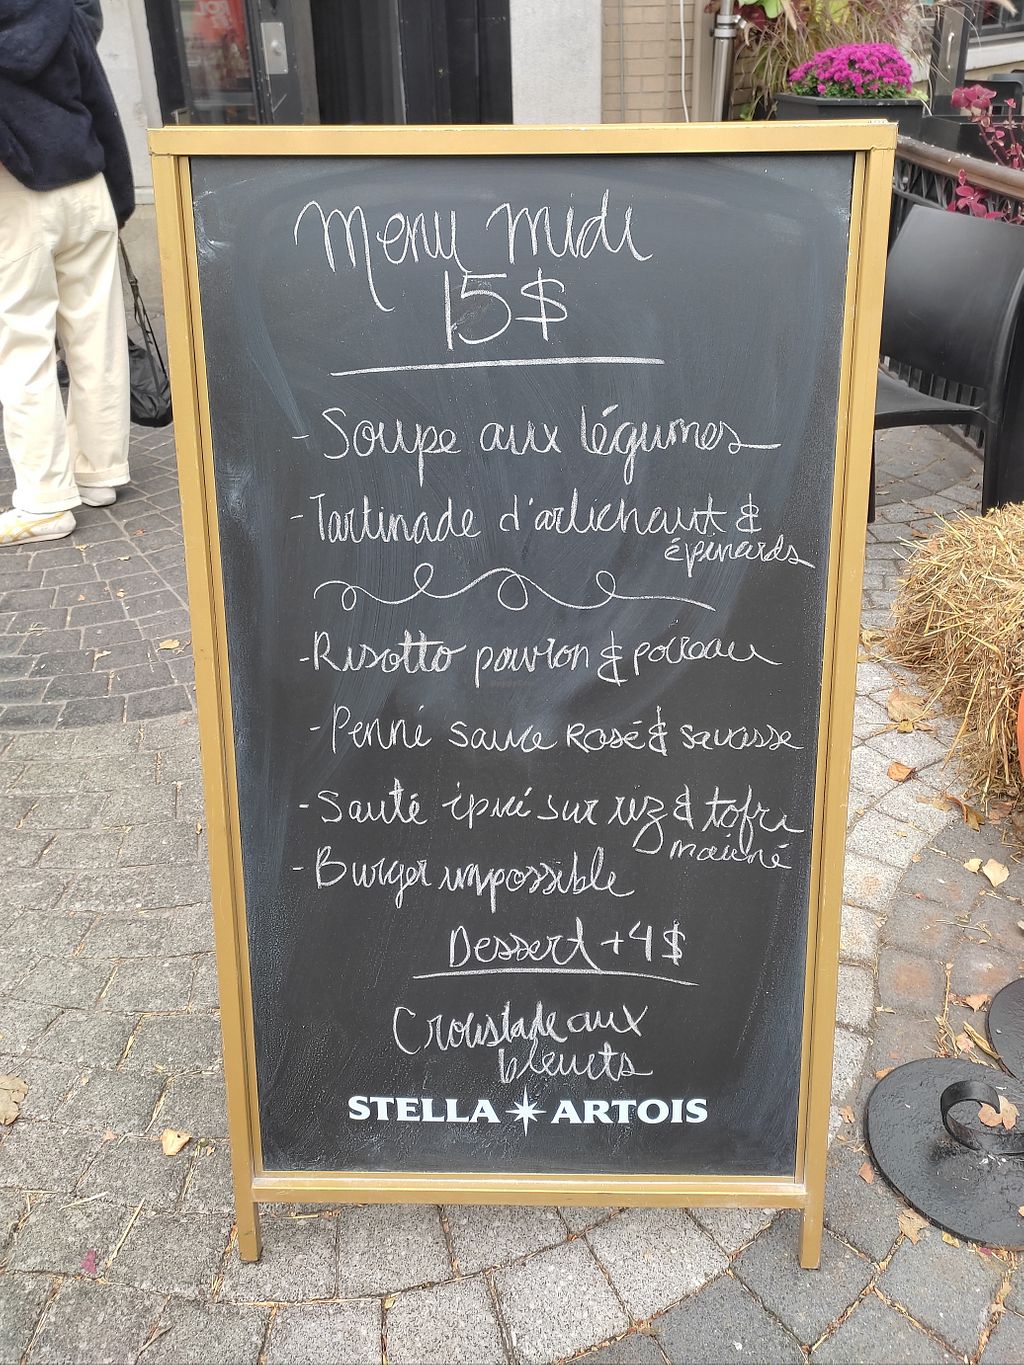 Menu midi
15$
- Soupe aux légumes
- Tartinade d'artichaut &
épinards
- Risotto poivron & poireau
- Penné sauce Rosé & saucisse
- Sauté épicé sur riz & tofu
mariné
- Burger impossible
Dessert +4$
Croustade aux
bleuets
STELLA ARTOIS